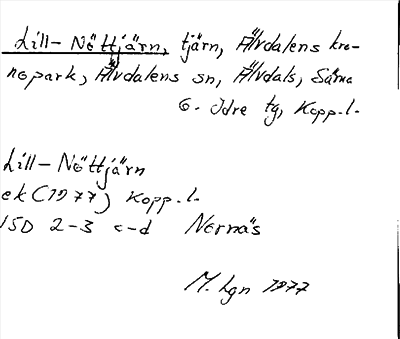 Lill-Nöttjärn, tjärn, Älvdalens kro-
nopark, Älvdalens sn, Älvdals, Särna
o. Idre tg, Kopp.l.
Lill-Nöttjärn
ek (1977) Kopp.l.
15D 2-3 c-d Nornäs
M. Lgn 1977